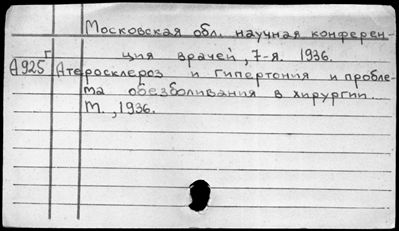 Московская обл. научная конферен-
ция врачей, 7-я. 1936.
А925г Атеросклероз и гипертония и пробле-
ма обезболивания в хирургии.
М., 1936.